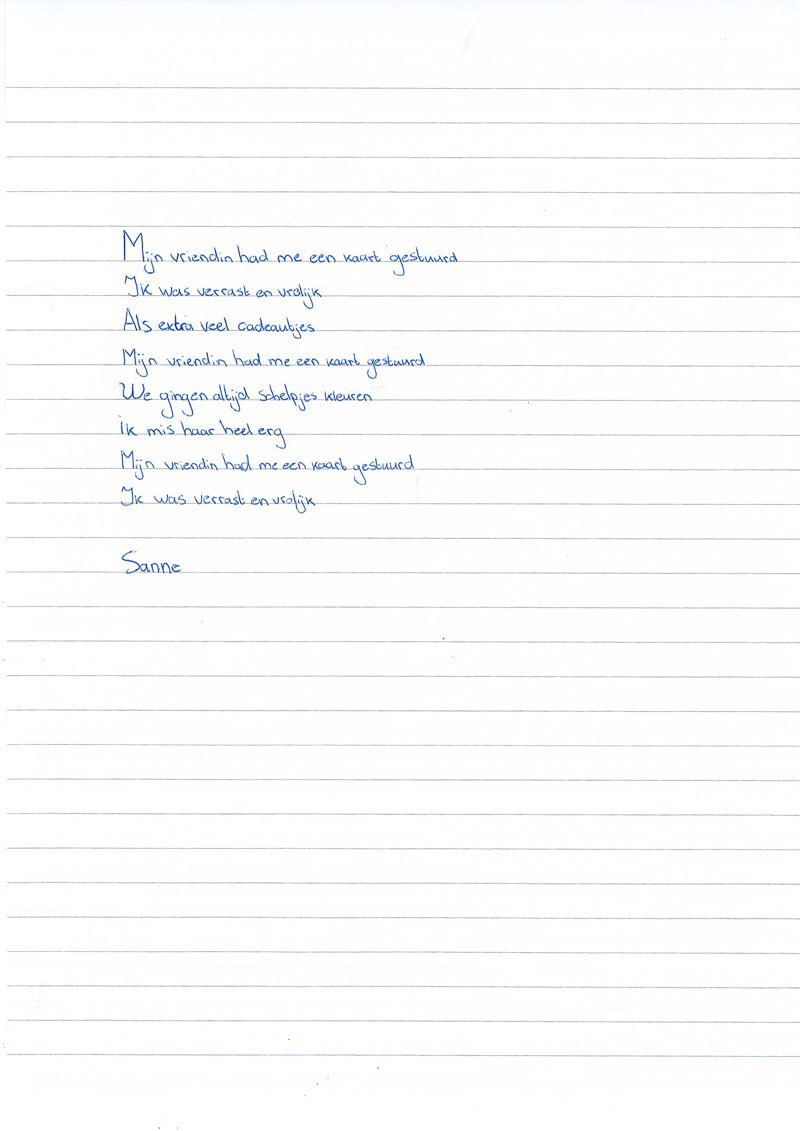 Mijn vriendin had me een kaart gestuurd
Ik was verrast en vrolijk
Als extra veel cadeautjes
Mijn vriendin had me een kaart gestuurd
We gingen altijd schelpjes kleuren
ik mis haar heel erg
Mijn vriendin had me een kaart gestuurd
Ik was verrast en vrolijk
Sanne